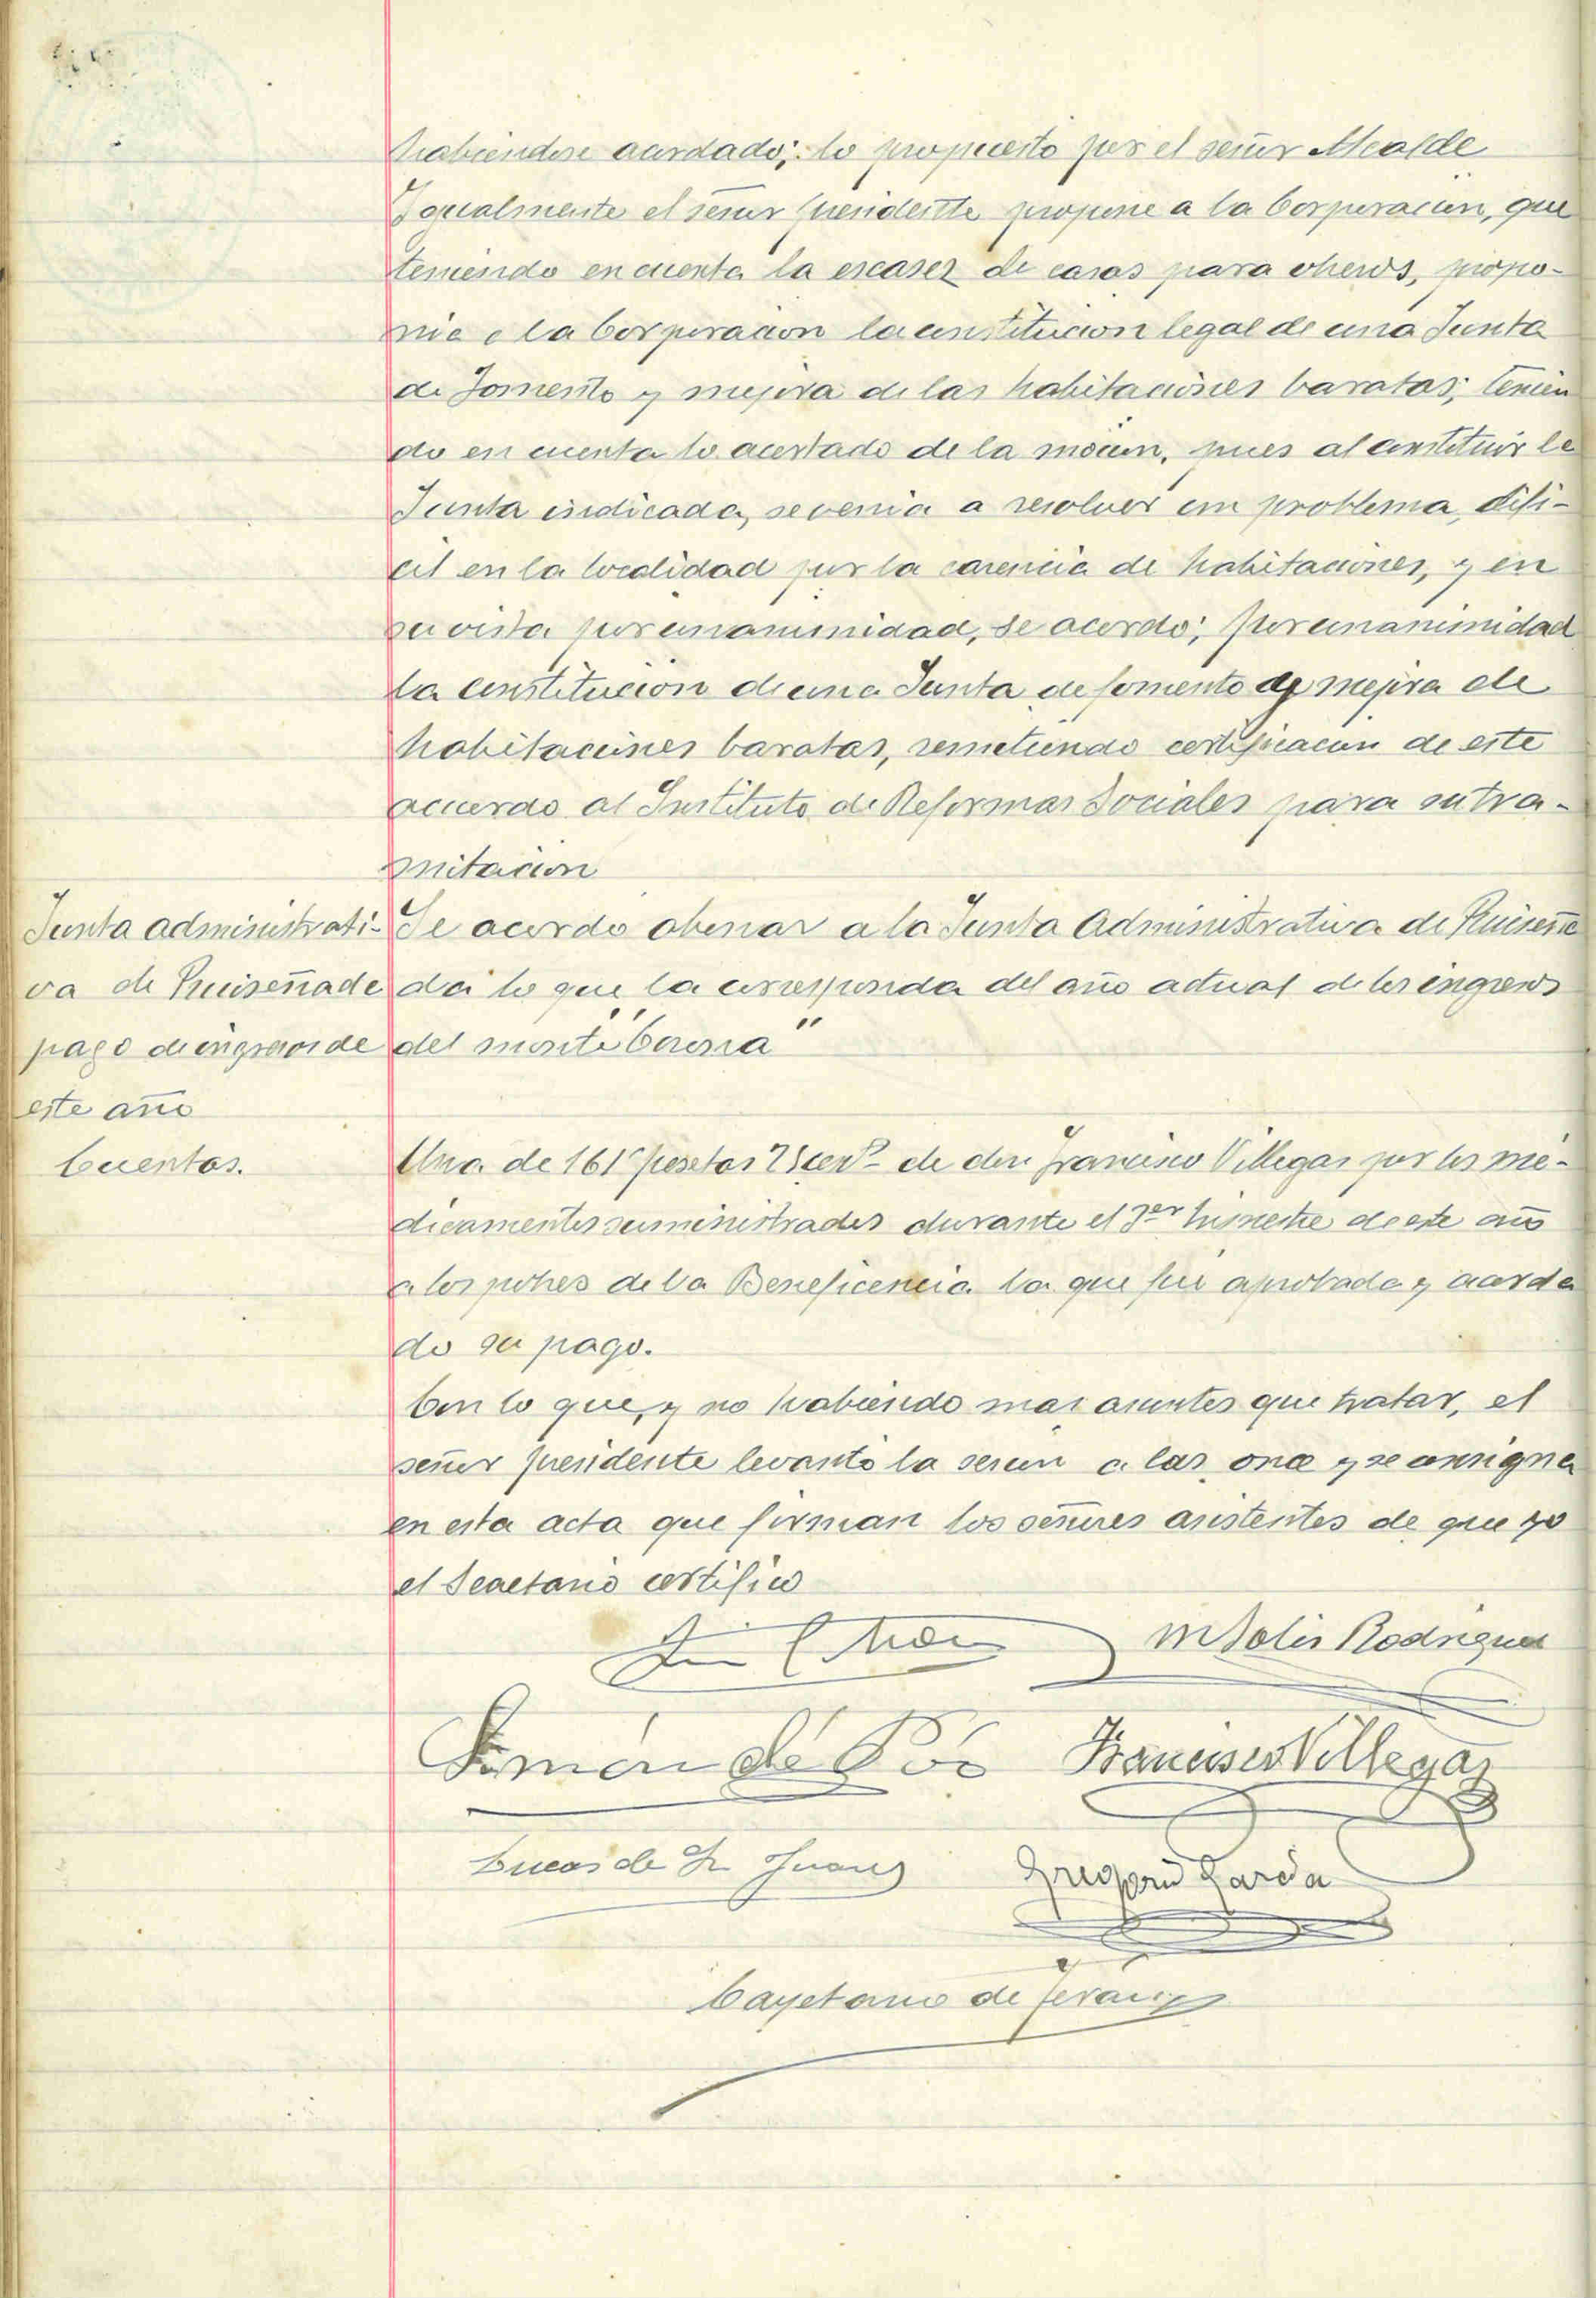 habiendose acordado; lo propuesto por el señor Alcalde
Igualmente el señor Presidente propone a la Corporacion, que
teniendo en cuenta la escasez de casas para obreros, propo-
nia a la Corporacion la constitucion legal de una Junta
de Fomento y mejora de las habitaciones baratas; tenien
do en cuenta lo acertado de la mocion, pues al constituir la
Junta indicada, se venia a resolver un problema difi-
cil en la localidad por la carencia de habitaciones, y en
su vista por unanimidad, se acordo; por unanimidad
la constitucion de una Junta de fomento y mejora de
habitaciones baratas, remitiendo certificacion de este
acuerdo al Instituto de Reformas Sociales para su tra-
mitacion
Junta administrati-
va de Ruiseñada
pago de ingresos de
este año
Se acordo abonar a la Junta Administrativa de Ruiseña
da lo que la corresponda del año actual de los ingresos
del monte "Corona"
Cuentas.
Una de 161 pesetas de don Francisco Villegas por los me-
dicamentos suministrados durante el 3er trimestre de este año
a los pobres de la Beneficencia la que fue aprobada y acorda
do su pago.
Con lo que, y no habiendo mas asuntos que tratar, el
señor presidente levanto la sesion a las once y se consigna
en esta acta que firman los señores asistentes de que yo
el Secretario certifico
M Solis Rodriguez
Roman de Cos Francisco Villegas
Lucas de San Juan
Gregorio Garcia
Cayetano de Teran